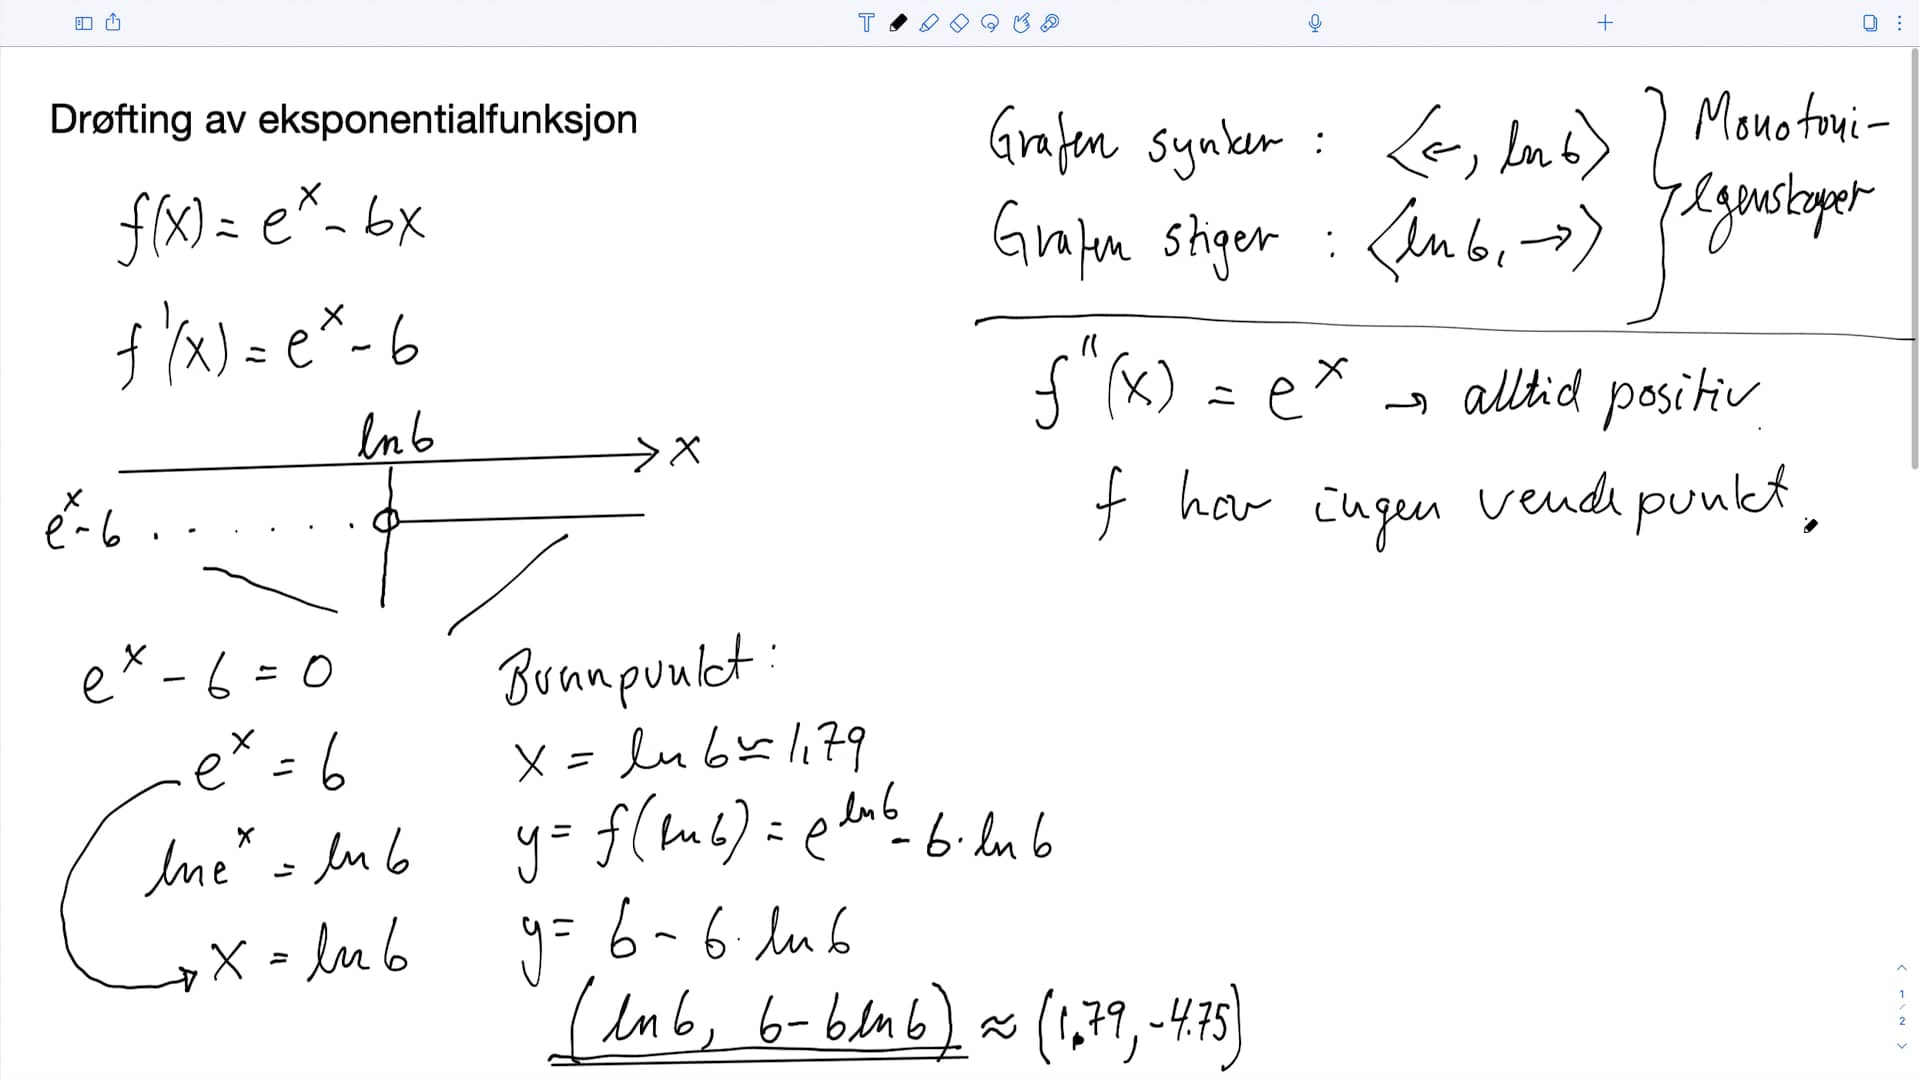 Drøfting av eksponentialfunksjon
f(x) = e^x - 6x
f'(x) = e^x - 6
ln 6
x
e^x - 6
e^x - 6 = 0
e^x = 6
ln e^x = ln 6
x = ln 6
Bunnpunkt:
x = ln 6 ≃ 1,79
y = f(ln 6) = e^ln 6 - 6·ln 6
y = 6 - 6·ln 6
(ln 6, 6 - 6 ln 6) ≈ (1,79, -4.75)
Grafen synker : ⟨←, ln 6⟩
Grafen stiger : ⟨ln 6, →⟩
Monotoni-
egenskaper
f''(x) = e^x → alltid positiv.
f har ingen vendepunkt.
1
/
2